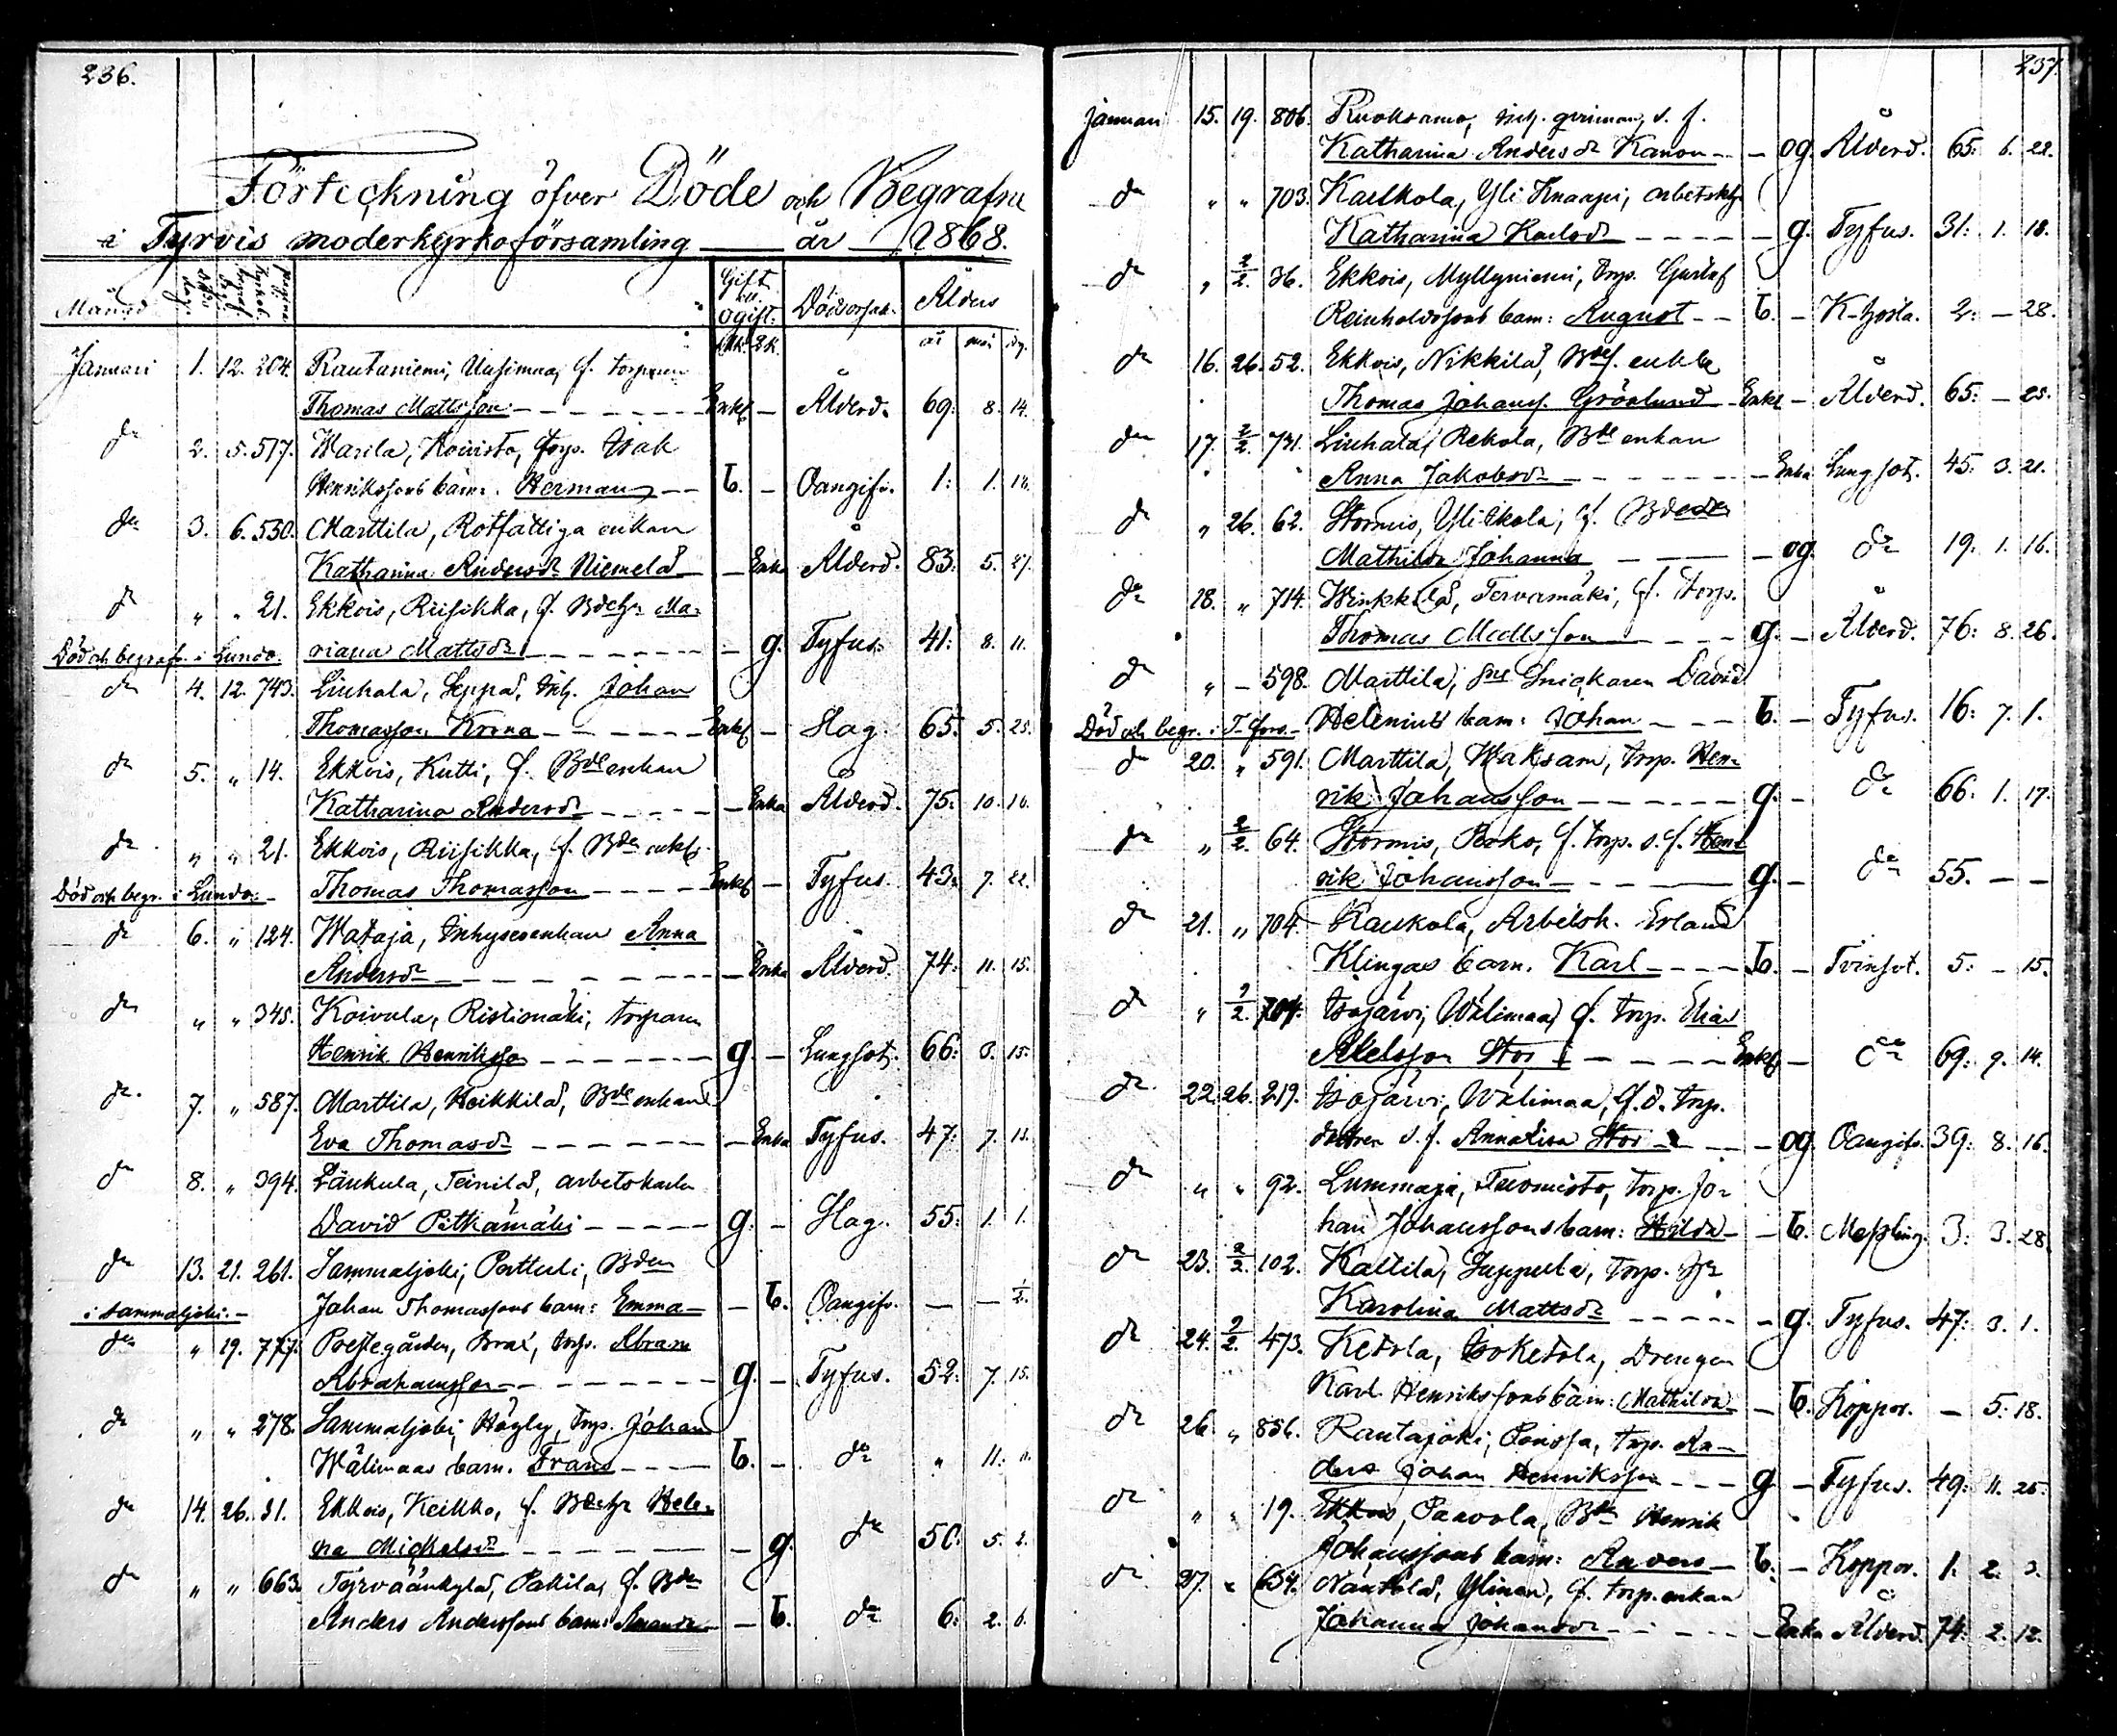 236.
Förteckning öfver Döde och Begrafne
i Tyrvis moderkyrkoförsamling år 1868.
Månad
Gift
Ogift.
Dödsorsak.
Ålder
Mk. Qk. år mån dag.
Januari 1. 12. 204. Rautaniemi, Uusimaa, f. torparen
Thomas Mattsson Enkl. — Ålderd. 69. 8. 14.
do 2. 5. 517. Warila, Koivisto, torp. Isak
Henrikssons barn. Herman b. — Oangifv. 1. 1.
do 3. 6. 530. Marttila, Rotfattiga enkan
Katharina Andersdr Niemelä — Enka Ålderd. 83. 5. 27.
do " " 21. Ekkois, Riisikka, f. Bdehr Ma-
Död och begrafv. i Lundo. riana Mattsdr — g. Tyfus. 41. 8. 11.
do 4. 12. 743. Liuhala, Seppä, inh. Johan
Thomasson Krona Enkl. — Slag. 65. 5. 25.
do 5. " 14. Ekkois, Kutti, f. Bde enkan
Katharina Andersdr — Enka Ålderd. 75. 10.
do " " 21. Ekkois, Riisikka, f. Bde enkl.
Död och begr. i Lundo. Thomas Thomasson Enkl. — Tyfus. 43. 7. 22.
do 6. " 124. Wataja, Inhysesenkan Anna
Andersdr — Enka Ålderd. 74. 11. 15.
do " " 345. Koivula, Ristiomäki, torparen
Henrik Henriksson g. — Lungsot. 66. 3. 15.
do 7. " 587. Marttila, Heikkilä, Bde enkan
Eva Thomasdr — Enka Tyfus. 47. 7. 13.
do 8. " 394. Länkula, Teinilä, arbetskarlen
David Pitkämäki g. — Slag. 55. 1. 1.
do 13. 21. 261. Sammaljoki, Pertteli, Bden
i Sammaljoki. Johan Thomassons barn: Emma — b. Oangifv. — — 1/2.
do " 19. 777. Prestegården, torp. Abram
Abrahamsson g. — Tyfus. 52. 7. 15.
do " " 278. Sammaljoki, Högby, torp. Johan
Wälimaas barn. Frans b. — do " 11. 11.
do 14. 26. 31. Ekkois, Keikko, f. Bdehr Hele-
na Mickelsdr — g. do 50. 5. 2.
do " " 663. Tyrväänkylä, Pakila, f. Bden
Anders Anderssons barn: Amanda — b. do 6. 2. 6.
237.
Januari 15. 19. 806. Ruoksamo, inh. qvinnan, s. f.
Katharina Andersdr Kanon — og. Ålderd. 65. 6. 22.
do " " 703. Kaukola, Yli Knaapi, arbetskhr
Katharina Karlsdr — g. Tyfus. 31. 1. 18.
do " 2/2. 36. Ekkois, Myllyniemi, torp. Gustaf
Reinholdssons barn: August b. — K-hosta. 2. — 28.
do 16. 26. 52. Ekkois, Nikkilä, Bdef. enkl.
Thomas Johanss. Grönlund Enkl. — Ålderd. 65. — 25.
do 17. 2/2. 731. Liuhala, Rekola, Bde enkan
Anna Jakobsdr — Enka Lungsot. 45. 3. 21.
do " 26. 62. Stormis, Yli Skola, f. Bdedr
Mathilda Johanna — og. do 19. 1. 16.
do 18. " 714. Winkkilä, Tervamäki, f. torp.
Thomas Mattsson g. — Ålderd. 76. 8. 26.
do " — 598. Marttila, Snickaren David
Död och begr. i T-fors. Helenius barn: Johan b. — Tyfus. 16. 7. 1.
do 20. " 591. Marttila, Waksam, torp. Hen-
rik Johansson g. — do 66. 1. 17.
do " 2/2. 64. Stormis, Pesko, f. torp. s. f. Hen-
rik Johansson g. — do 55. — —
do 21. " 704. Kaukola, Arbetsk. Erland
Klingas barn. Karl b. — Tvinsot. 5. — 15.
do " 2/2. 704. Isojärvi, Wälimaa, f. torp. Elias
Akelsson Stor Enkl. — do 69. 9. 14.
do 22. 26. 219. Isojärvi, Wälimaa, f. d. torp.
dottren s. f. Annalisa Stor — og. Oangifv. 39. 8. 16.
do " " 92. Lummaja, Tuomisto, torp. Jo-
han Johanssons barn: Hilda — b. Messling. 3. 3. 28.
do 23. 2/2. 102. Kaltila, Juppula, torp. hr
Karolina Mattsdr — g. Tyfus. 47. 3. 1.
do 24. 2/2. 473. Ketola, Isoketola, Drengen
Karl Henrikssons barn: Mathilda — b. Koppor. — 5. 18.
do 26. " 856. Rautajoki, torp. An-
ders Johan Henriksson g — Tyfus. 49. 11. 25.
do " " 19. Ekkois, Paavola, Bde Henrik
Johanssons barn: Anders b. — Koppor. 1. 2. 3.
do 27. " 654. Näntölä, Ylinen, f. torp. enkan
Johanna Johansdr — Enka Ålderd. 74. 2. 12.